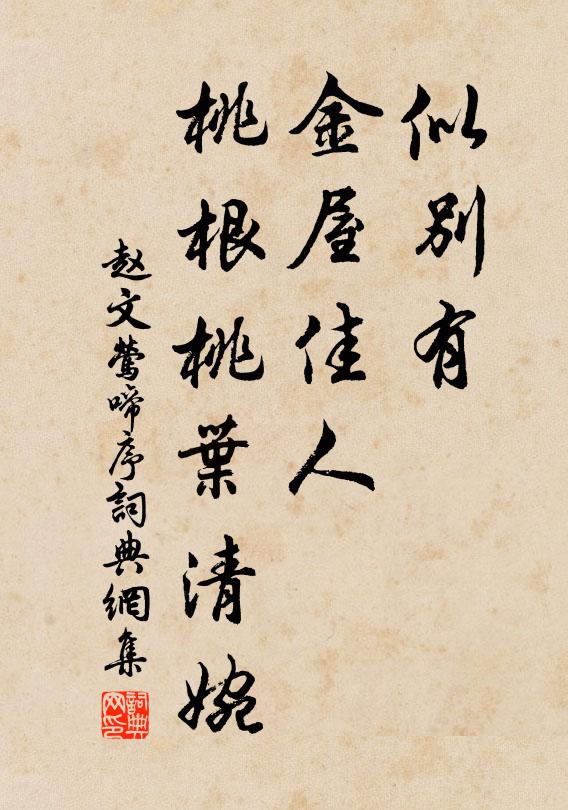 似别有
金屋佳人
桃根桃葉清婉
赵文鶯啼序詞典網集
詞典网印